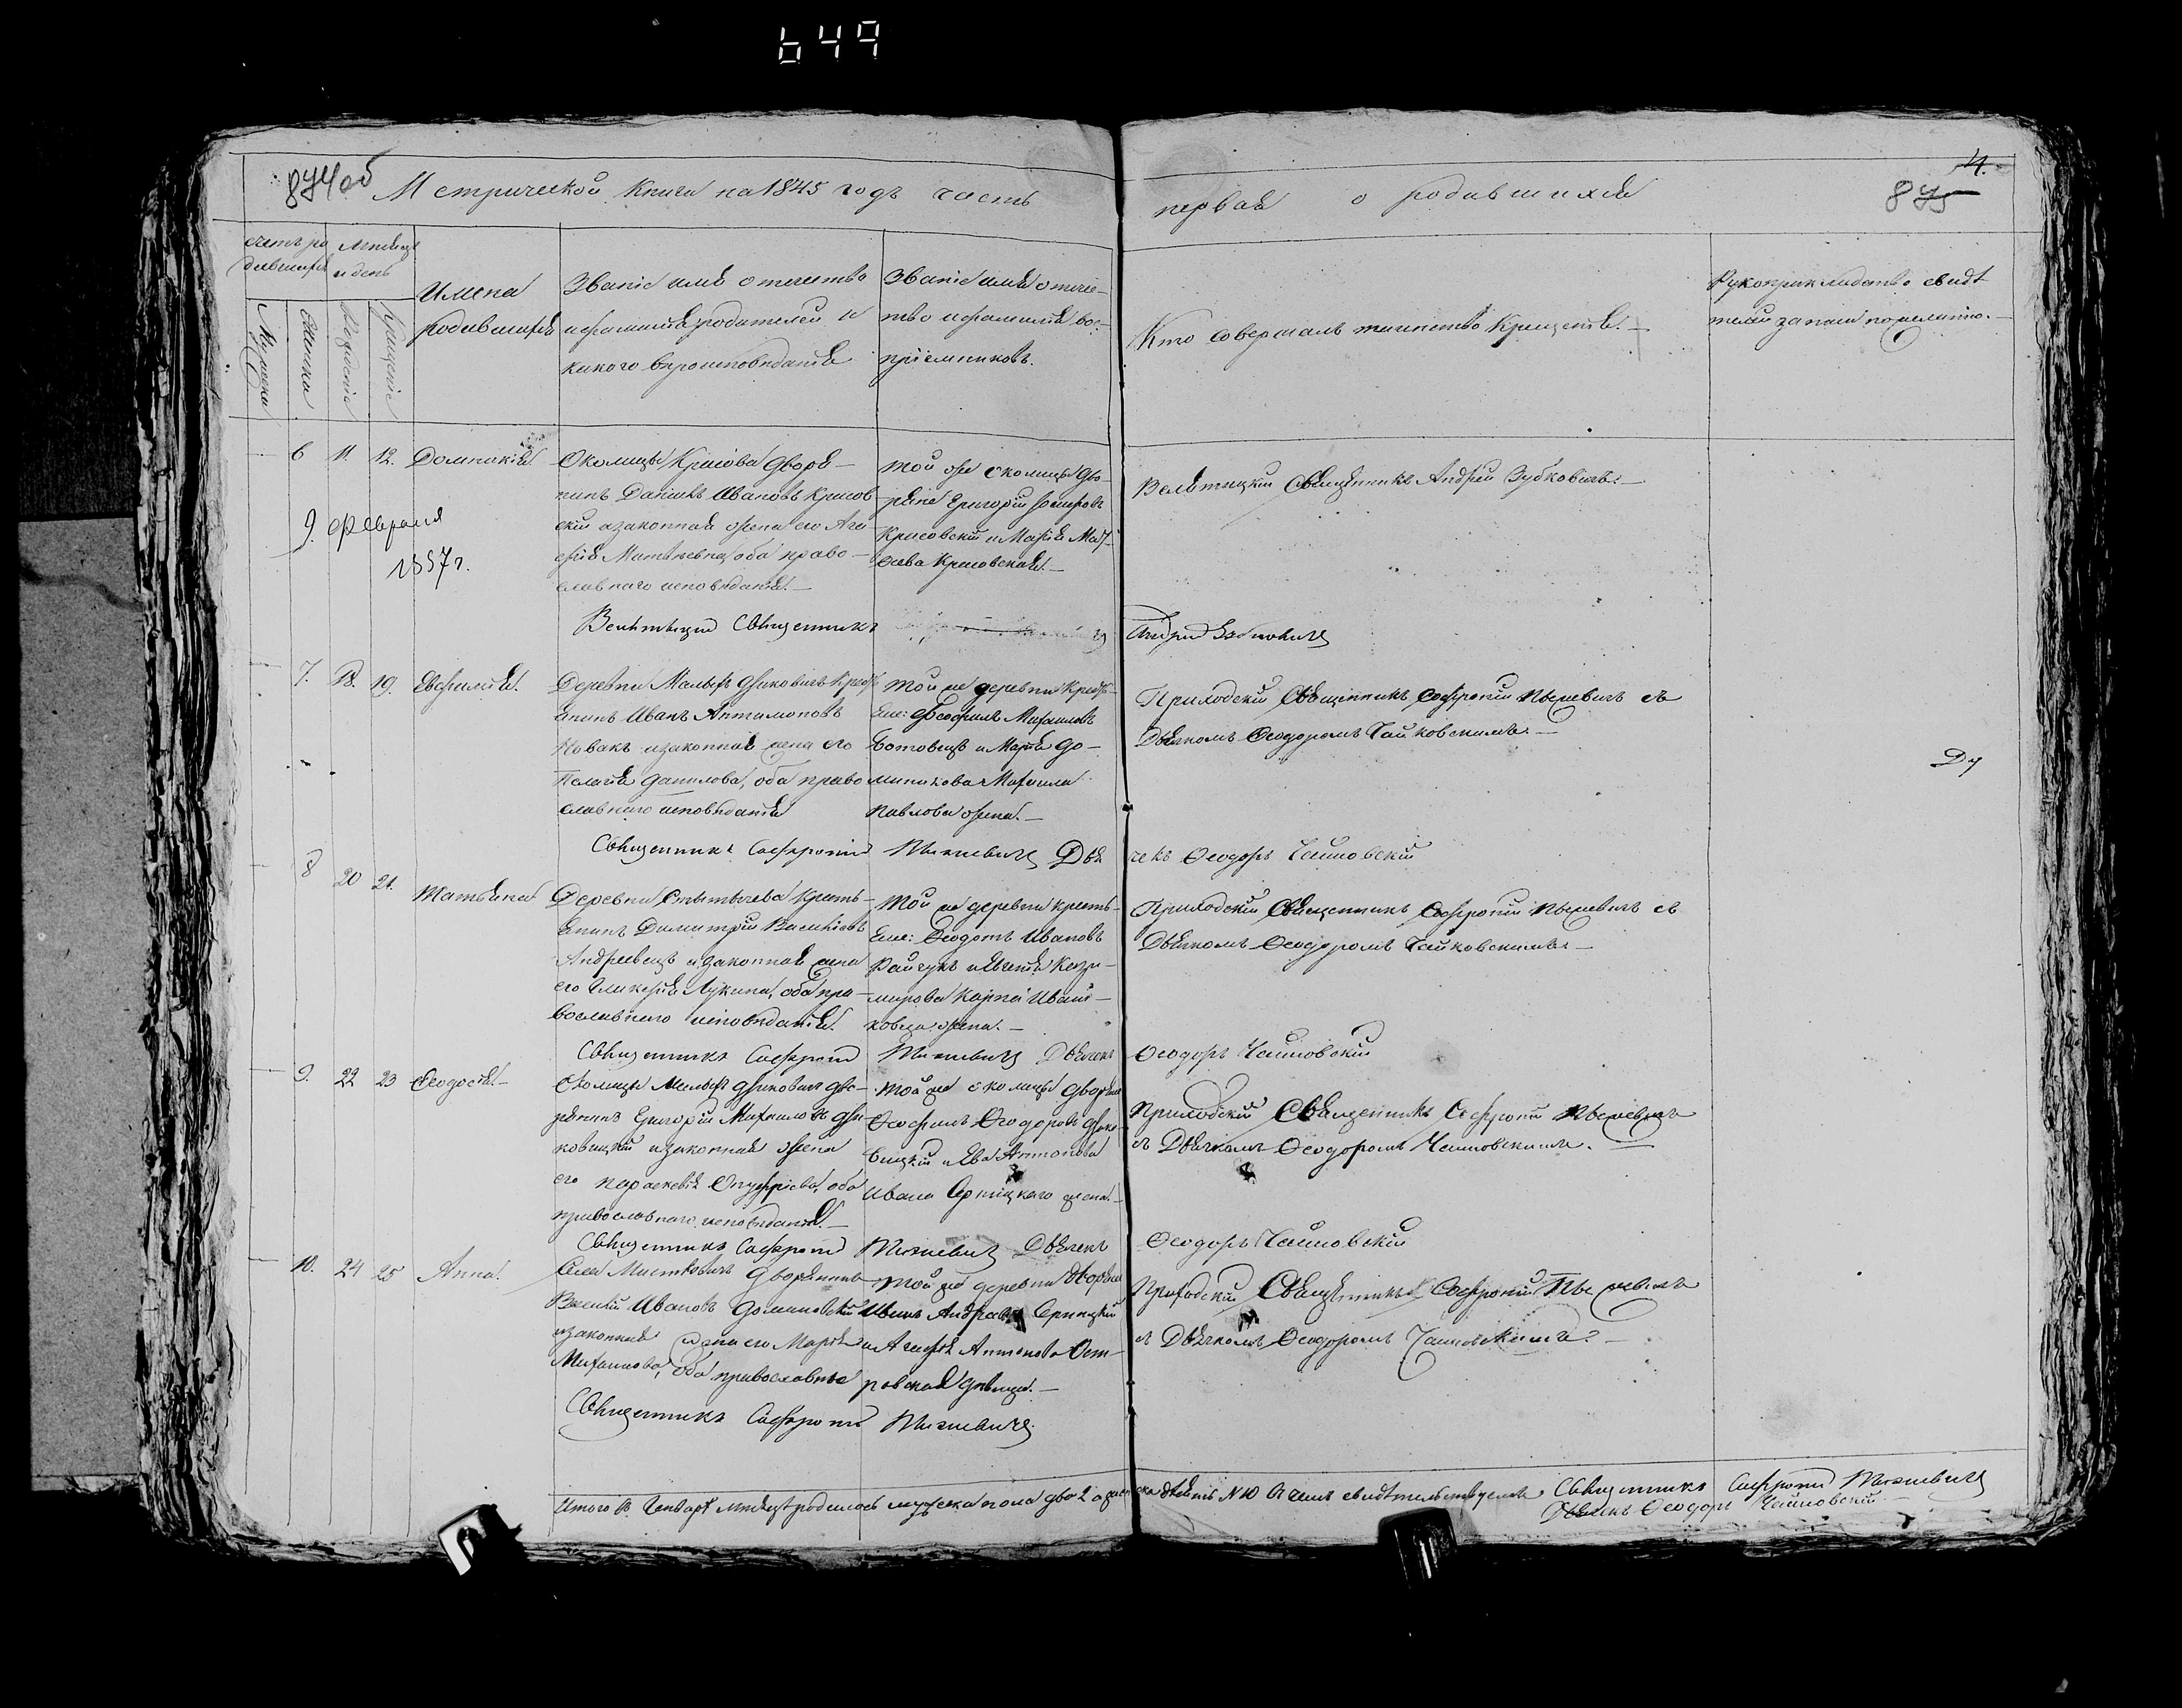 649
874об
Метрической Книги на 1845 годъ часть
первая о родившихся
4.
875
Счетъ ро
дившихся
Мѣсяцъ
и день
Мужеска
Женска
Рожденія
Крещенія
Имена
родившихся
Званіе имя отечество
и фамилія родителей и
какого вѣроисповѣданія
Званіе имя отече-
тво и фамилія вос-
пріемниковъ.
Кто совершалъ таинство Крещенія.
Рукоприкладство свидѣ
телей записи по желанію.
6 11. 12. Домникія
9. февраля
1857 г.
Околицы Крисова дворя-
нинъ Даніилъ Ивановъ Крисов
скій и законная жена его Ага
фія Матвѣевна, оба право-
славнаго исповѣданія.
той же околицы дво-
ряне Григорій Іосифовъ
Крисовскій и Марія Мат-
ѳеева Крисовская.
Велятицкій Священникъ Андрей Зубковичъ.
Велятыцкій Священникъ
Андрей Зубковичъ
7. 18. 19. Евфимія.
Деревни Малыхъ Жиковичъ Крест
янинъ Иванъ Антимоновъ
Новакъ и законная жена его
Пелагія Данилова, оба право
славнаго исповѣданія
той же деревни Крестья-
не: Ѳеофилъ Михайловъ
и Марія До-
миникова Михаила
Павлова жена.
Приходскій Священникъ Софроній Пыжевичъ съ
Дьячкомъ Ѳеодоромъ Чайковскимъ.
Ду
Священникъ Софроній Пыжевичъ Дья
чекъ Ѳеодоръ Чайковскій
8 20 21. Татьяна
Деревни Стытычева Кресть-
янинъ Димитрій Васильевъ
Андреевецъ и законная жена
его Гликерія Лукина, оба пра-
вославнаго исповѣданія.
той же деревни кресть-
яне: Ѳеодотъ Ивановъ
Райчукъ и Евгенія Кази-
мирова Карпа Иван-
ковца жена.
Приходскій Священникъ Софроній Пыжевичъ съ
Дьячкомъ Ѳеодоромъ Чайковскимъ.
Священникъ Софроній Пыжевичъ Дьячекъ
Ѳеодоръ Чайковскій
9. 22 23 Ѳеодосія.
Околицы Малыхъ Жиковичъ дво-
рянинъ Григорій Михайловъ Жи-
ковицкій и законная жена
его Параскевія Онуфріева, оба
православнаго исповѣданія.
той же околицы дворяне
Ѳеофилъ Ѳеодоровъ Жико-
вицкій и Ева Антонова
Ивана Сѣрницкаго жена.
Приходскій Священникъ Софроній Пыжевичъ
съ Дьячкомъ Ѳеодоромъ Чайковскимъ.
Священникъ Софроній Пыжевичъ Дьячекъ
Ѳеодоръ Чайковскій
10. 24 25 Анна.
Села Мистковичъ дворянинъ
Василій Ивановъ Домановскій
и законная жена его Марія
Михайлова, оба православные
той же деревни дворяне
Иванъ Андреевъ Серницкій
и Агафія Антонова Ост-
ровская дѣвица.
Приходскій Священникъ Софроній Пыжевичъ
съ Дьячкомъ Ѳеодоромъ Чайковскимъ.
Священникъ Софроній Пыжевичъ
Итого въ Генварѣ мѣсяцѣ родилось мужеска пола два 2 а женска десять №10 О чемъ свидѣтельствуемъ
Священникъ Софроній Пыжевичъ
Дьячекъ Ѳеодоръ Чайковскій